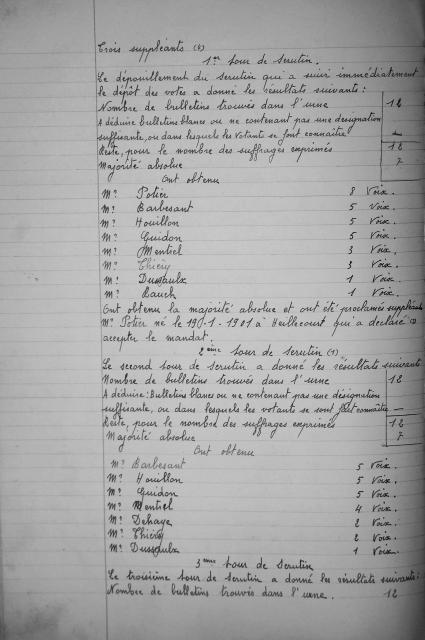 Trois suppléants (3)
1er tour de scrutin.
Le dépouillement du scrutin qui a suivi immédiatement
le dépôt des votes a donné les résultats suivants :
Nombre de bulletins trouvés dans l'urne 12
A déduire bulletins blancs ou ne contenant pas une désignation
suffisante, ou dans lesquels les votants se font connaître —
Reste, pour le nombre des suffrages exprimés 12
Majorité absolue 7
Ont obtenu
Mr Potier 8 Voix.
Mr Barbesant 5 Voix.
Mr Houillon 5 Voix.
Mr Guidon 5 Voix.
Mr Mentiel 3 Voix.
Mr Thiéry 3 Voix.
Mr Dussaulx 1 Voix.
Mr Bauch 1 Voix.
Ont obtenu la majorité absolue et ont été proclamés suppléants
Mr Potier né le 1901 à Heillecourt qui a déclaré
accepter le mandat.
2ème tour de scrutin (1)
Le second tour de scrutin a donné les résultats suivants
Nombre de bulletins trouvés dans l'urne 12
A déduire : Bulletins blancs ou ne contenant pas une désignation
suffisante, ou dans lesquels les votants se sont fait connaître —
Reste, pour le nombre des suffrages exprimés 12
Majorité absolue 7
Ont obtenu
Mr Barbesant 5 Voix.
Mr Houillon 5 Voix.
Mr Guidon 5 Voix.
Mr Mentiel 4 Voix.
Mr Dehaye 2 Voix.
Mr Thiéry 2 Voix.
Mr Dussaulx 1 Voix.
3ème tour de scrutin
Le troisième tour de scrutin a donné les résultats suivants :
Nombre de bulletins trouvés dans l'urne. 12